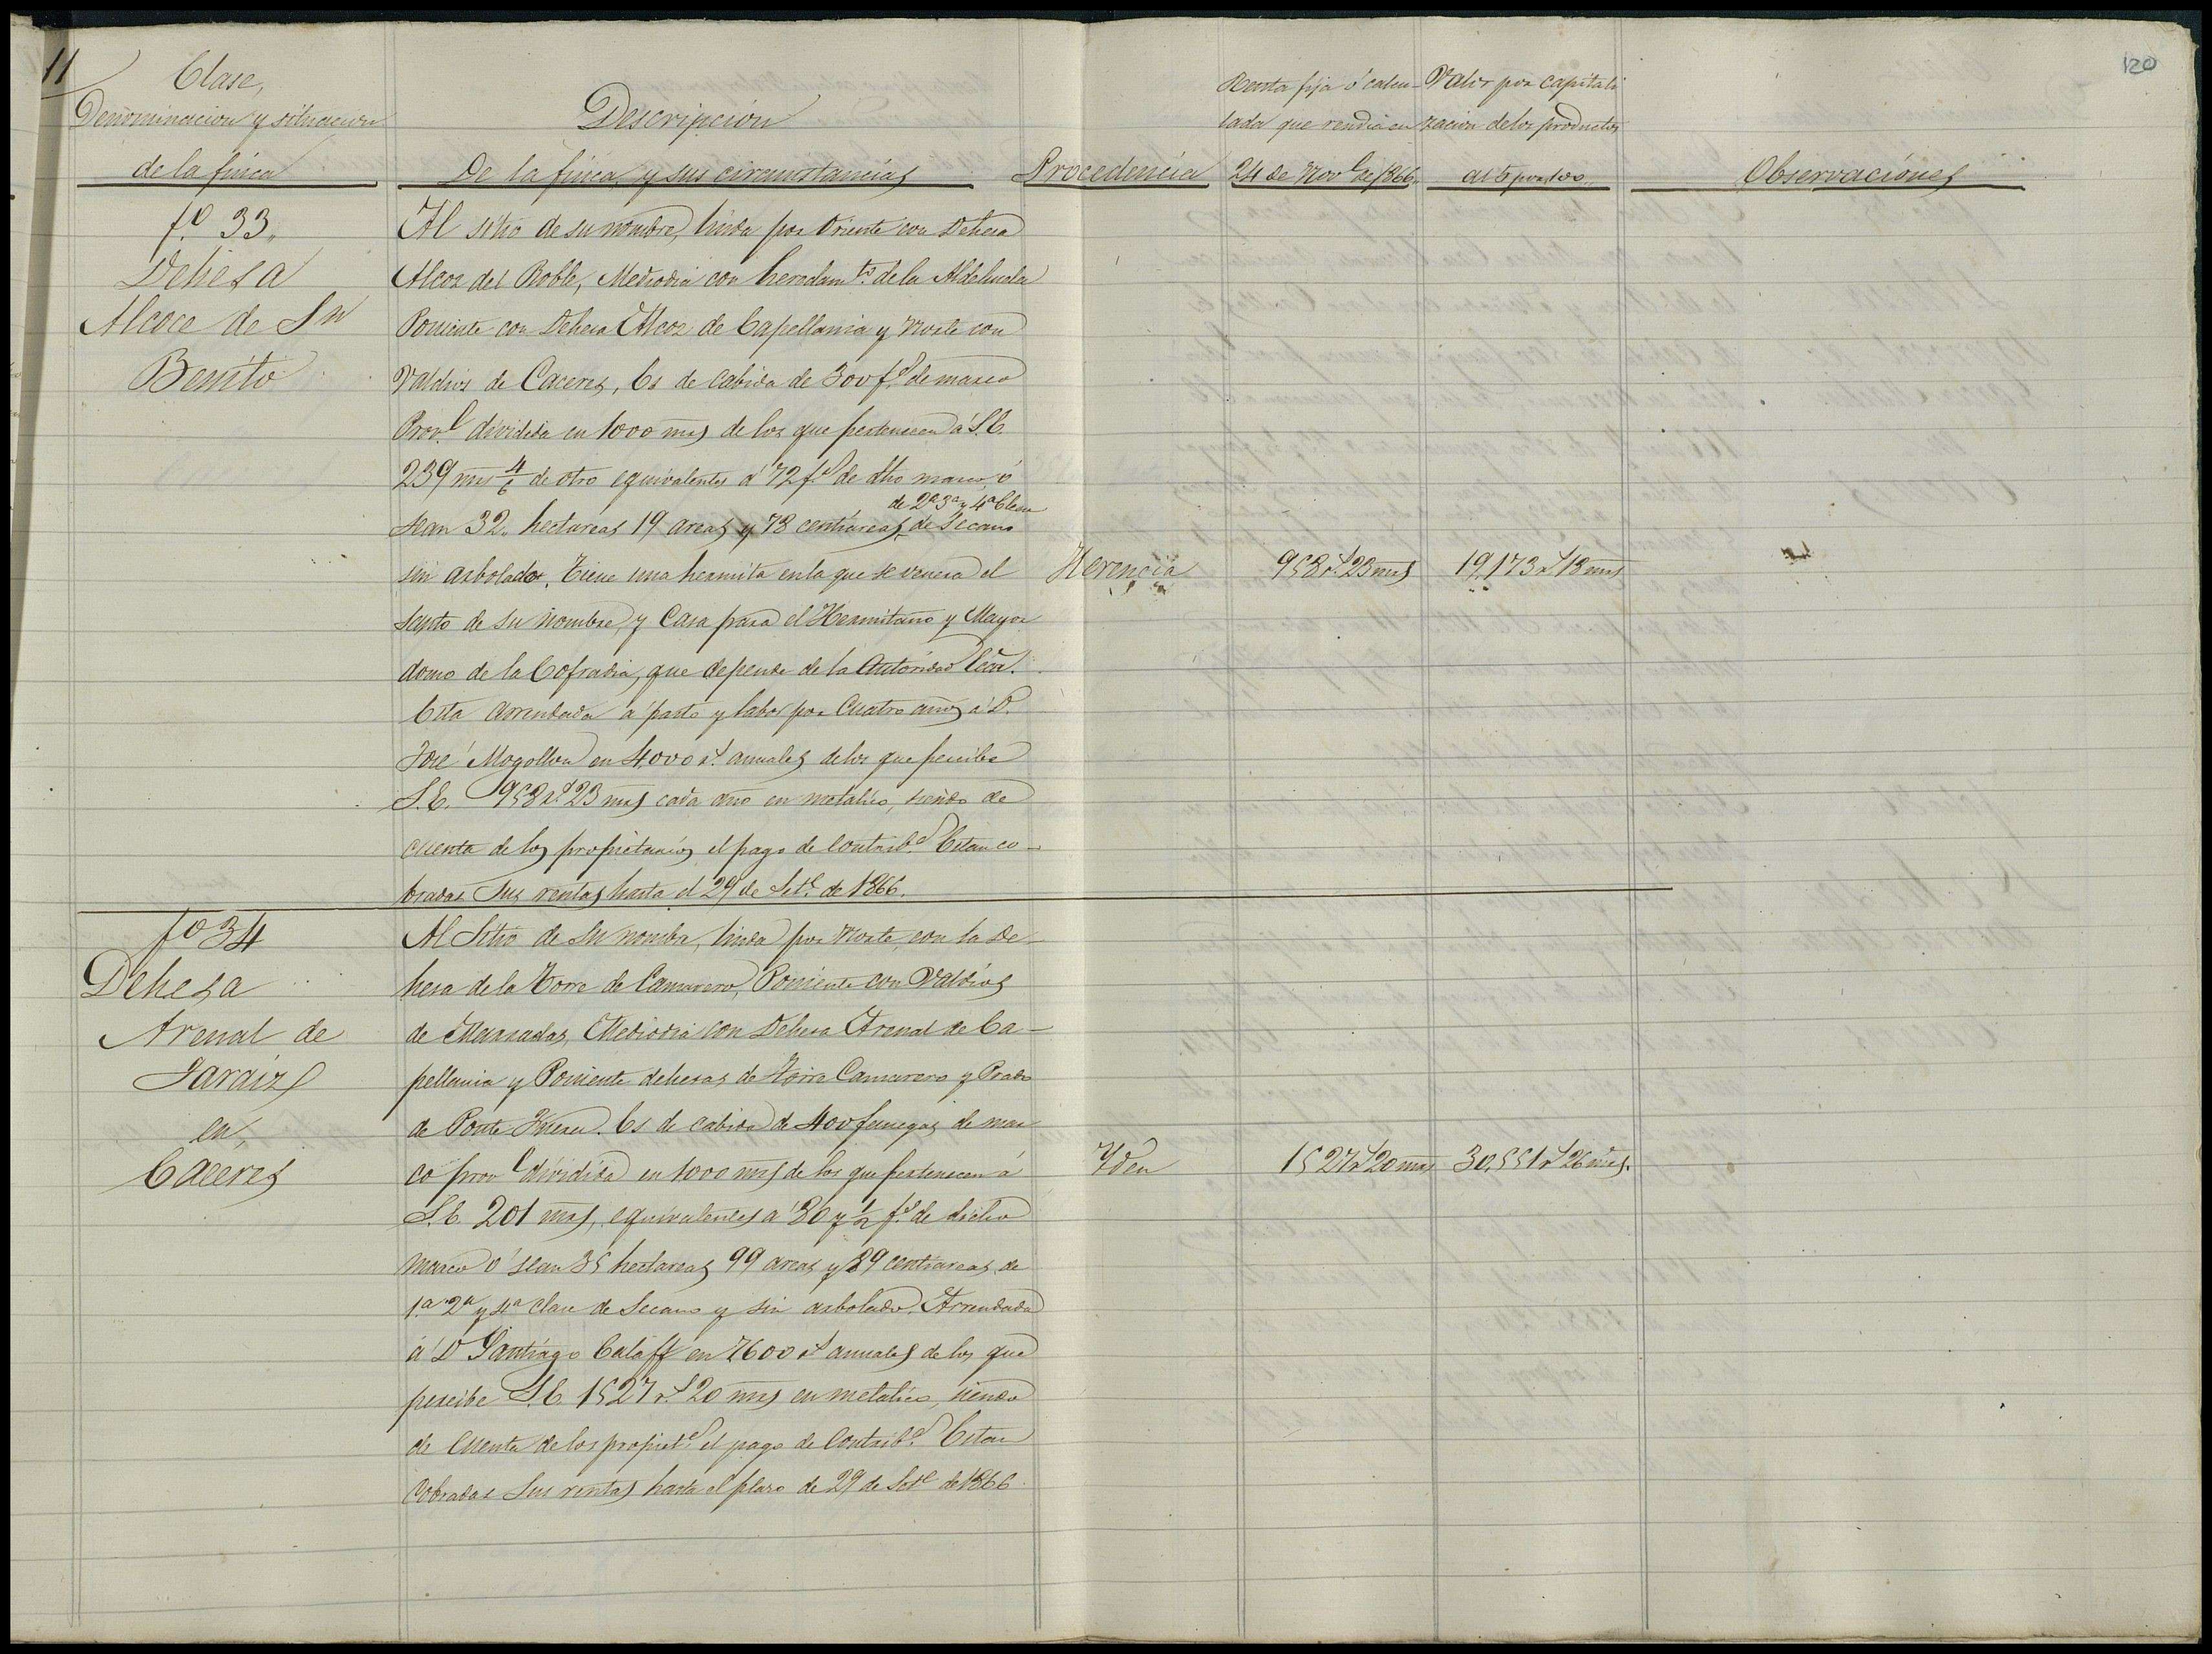 11
120
Clase,
Denominacion y situacion
de la finca
Descripcion
De la finca y sus circunstancias
Procedencia
Renta fija ó calcu-
lada que rendia en
24 de Nov.e de 1866.
Valor por capitali
zacion de los productos
al 5 por %
Observaciónes
f.º 33.
Dehesa
Alcoce de Sn
Benito
Al sitio de su nombre, linda por Oriente con Dehesa
Alcoz del Roble, Mediodia con heredam.to de la Aldehuela
Poniente con Dehesa Alcoz de Capellania y Norte con
Valdios de Caceres, Es de cabida de 300 f.s de marco
Prov.l dividida en 1000 mrs de los que pertenecen á S.E.
239 mrs 4/6 de otro equivalentes á 72 f.s de dho marco, ó
sean 32, hectareas 19 areas y 78 centiareas de 2ª 3ª y 4ª Clase de Secano
sin arbolado. Tiene una hermita en la que se venera el
santo de su nombre, y Casa para el Hermitaño y Mayor
domo de la Cofradia, que depende de la Autoridad Ecca.
Esta arrendada á pasto y labor por Cuatro años á D.
José Mogollon en 4.000 r.s annuales de los que percibe
S.E. 958 r.s 23 mrs cada año en metalico, siendo de
cuenta de los propietarios el pago de Contrib.s Estan co-
bradas sus rentas hasta el 29 de Set.e de 1866.
Herencia
958 r.s 23 mrs
19,173 r.s 18 mrs
fº 34
Dehesa
Arenal de
Jaraiz
en,
Cáceres
Al Sitio de su nombre, linda por Norte, con la De-
hesa de la Torre de Camarero, Poniente con Valdios
de Mediodia con Dehesa Arenal de Ca-
pellania y Poniente dehesas de Torre Camarero y Prado
de Ponte Es de cabida de 400 fanegas de mar
co prov.l dividida en 1000 mrs de los que pertenecen á
S.E. 201 mrs, equivalentes á 80 y 1/2 f.s de dicho
marco ó sean 35 hectareas 99 areas y 89 centiareas de
1.ª 2ª y 4ª clase de Secano y sin arbolado. Arrendada
á D Santiago Calaff en 7600 r.s annuales de los que
percibe S.E. 1527 r.s 20 mrs en metalico, siendo
de Cuenta de los propiet.s el pago de Contrib.s Estan
Cobradas sus rentas hasta el plazo de 29 de Set.e de 1866.
Yden
1527 r.s 20 mrs
30,551 r.s 26 mrs.